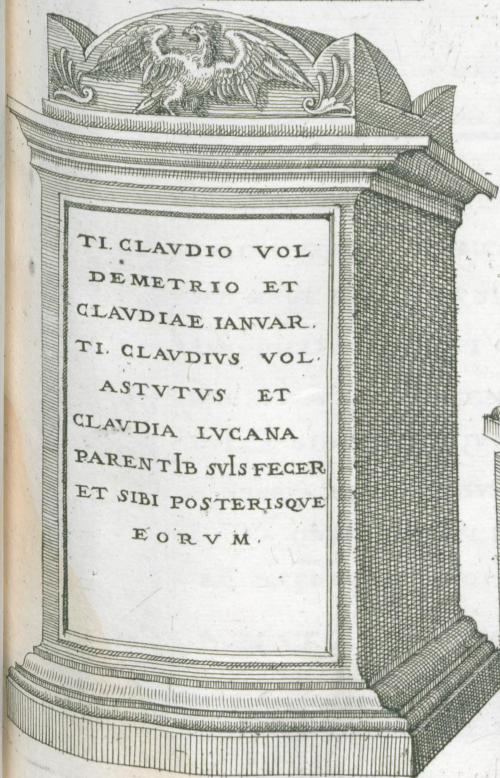 TI. CLAVDIO VOL
DEMETRIO ET
CLAVDIAE IANVAR.
TI. CLAVDIVS VOL.
ASTVTVS ET
CLAVDIA LVCANA
PARENTIB SVIS FECER
ET SIBI POSTERISQVE
EORVM.